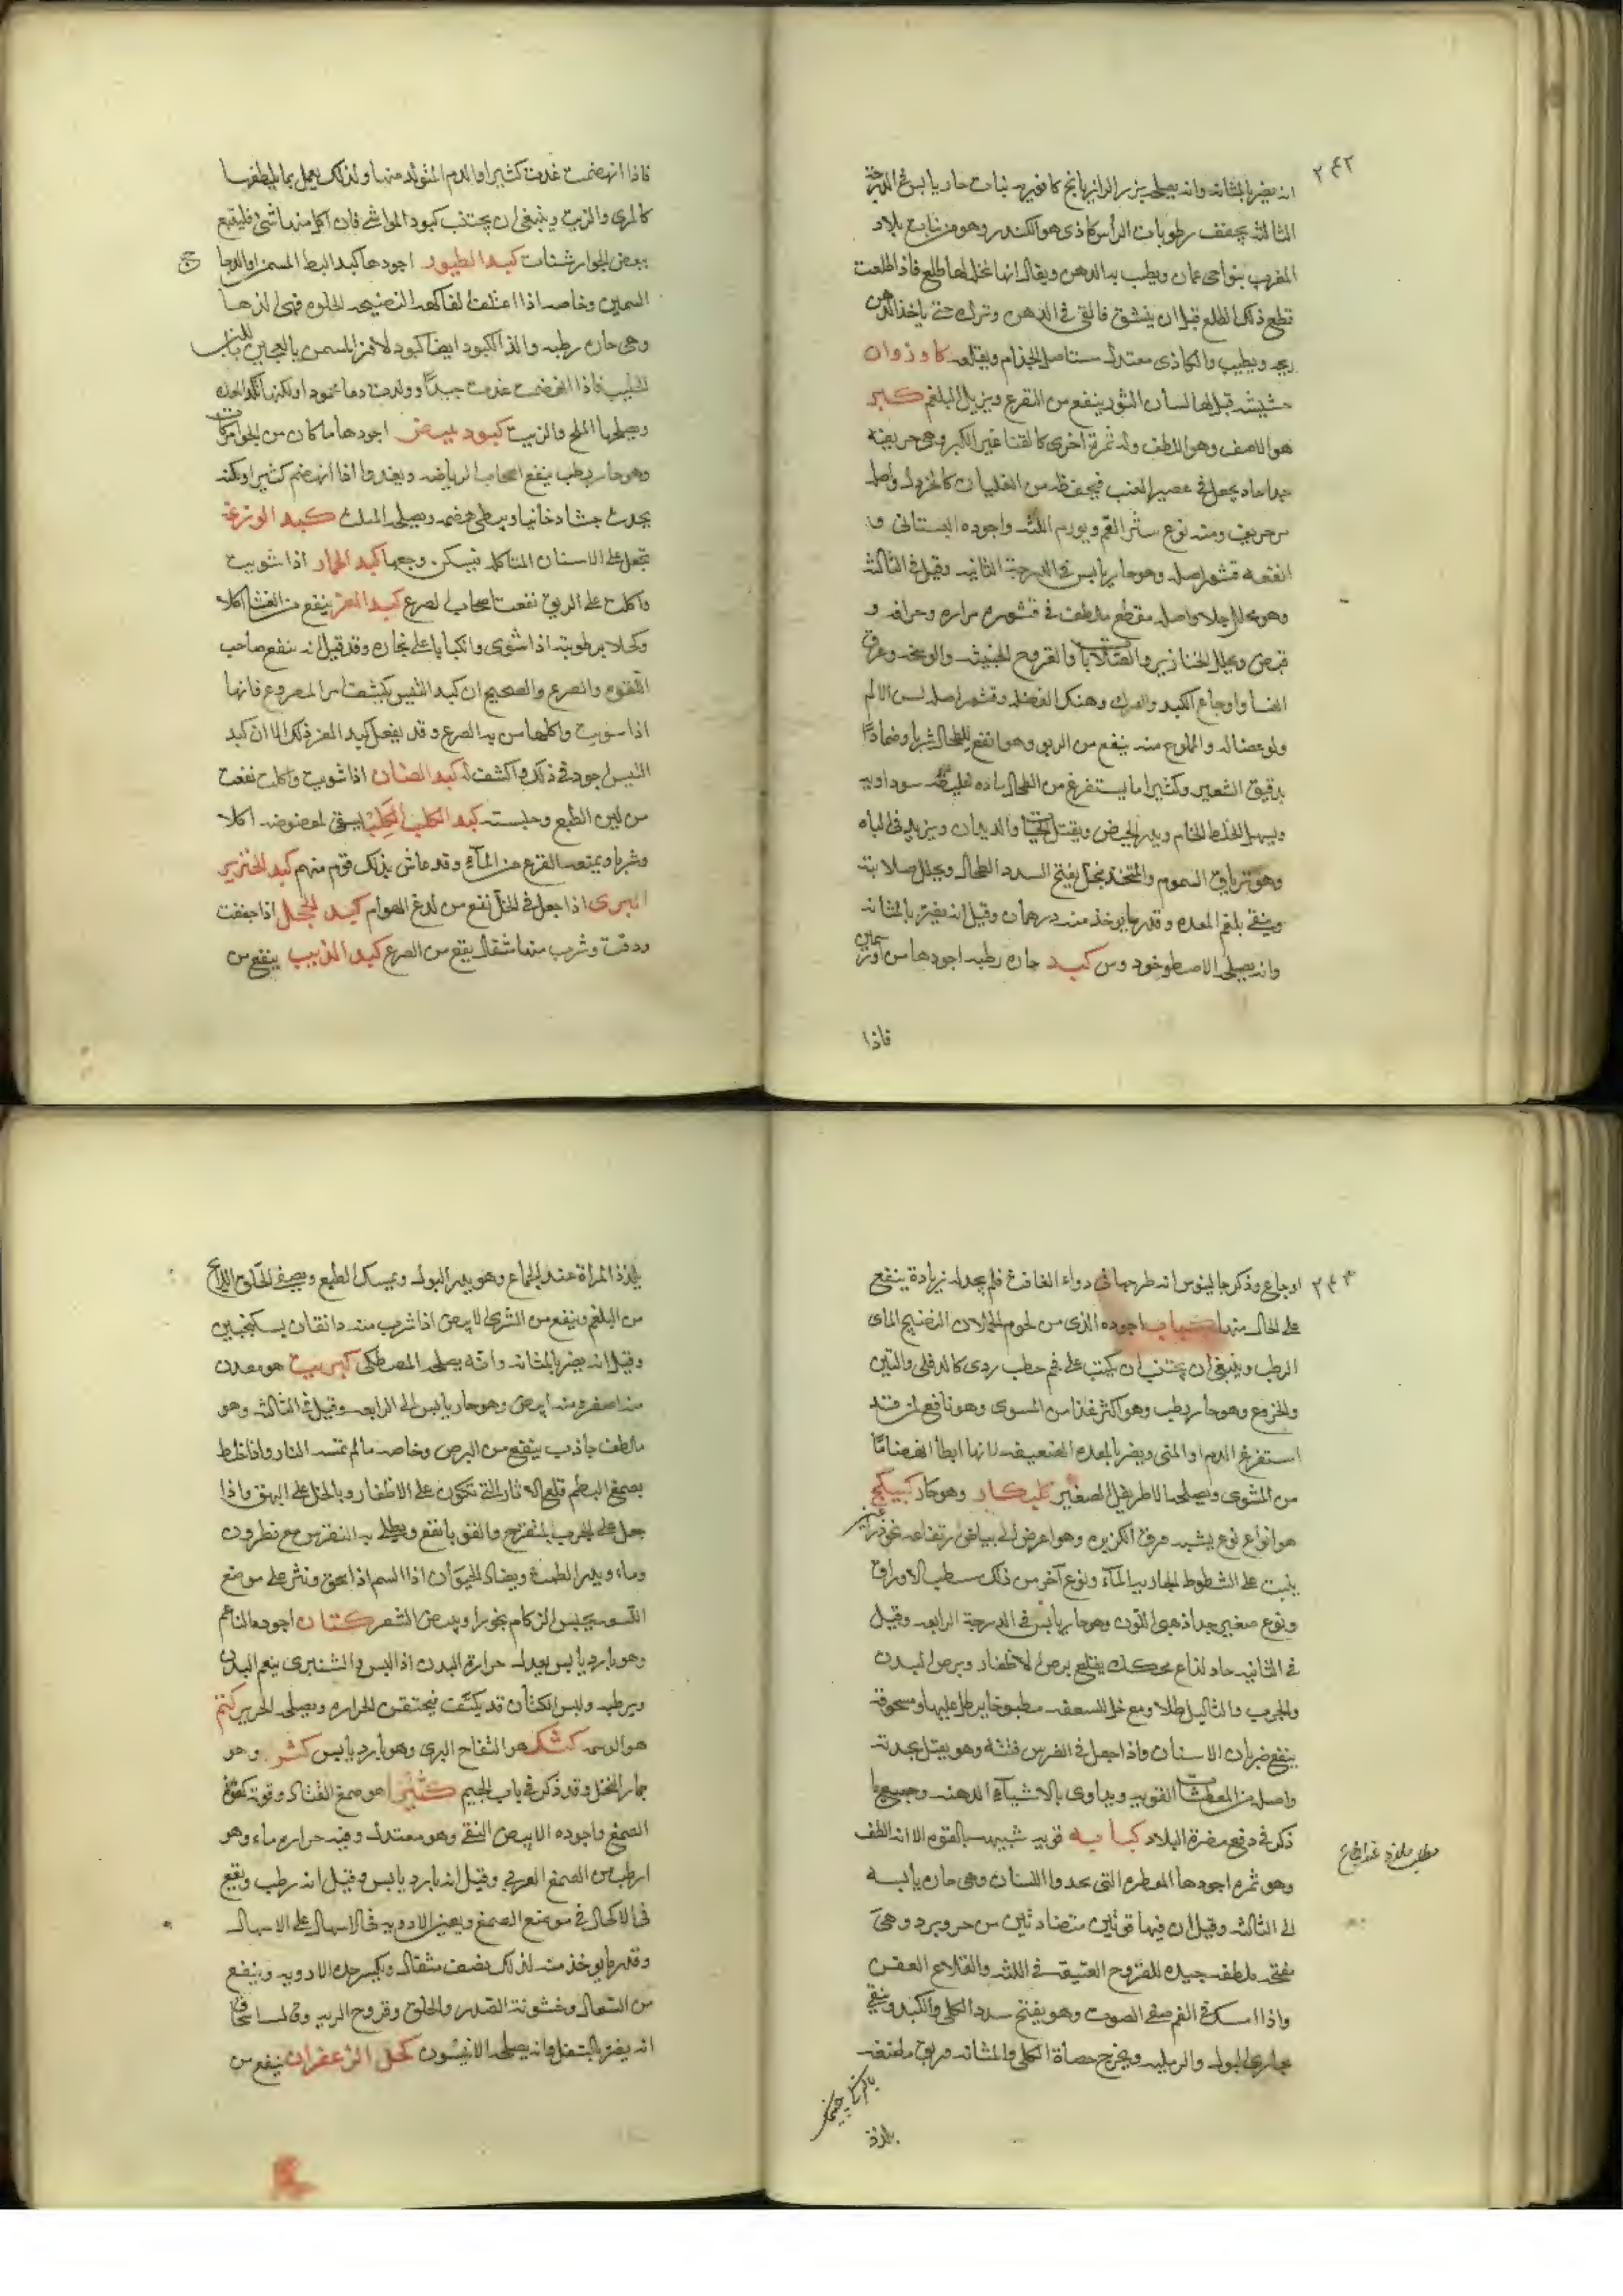 ٢٤٢
انه يضر بالمثانه وانه يصلحه بزر الرازيانج كافوريه نبات حار يابس في الدرجة
الثالثه يجفف رطوبات الراس كاذى هو الكندر وهو من نبات بلاد
المغرب بنواحى عمان ويطيب به الدهن ويقال انها نخل لها طلع فاذا طلعت
قطع ذلك الطلع قبل ان ينشق فالقى في الدهن وترك حتى ياخذ الدهن
ريحه ويطيب والكاذى معتدل يستاصل الجذام ويقلعه كاوزوان
حشيشه قيل لها لسان الثور ينفع من القرع ويزيل البلغم كبر
هو الاصف وهو اللطف وله ثمرة اخرى كالقثا غير الكبر وهى حريفه
جدا حاد يجعل في عصير العنب فيحفظه من الغليان كالخردل واصله
مر حريف ومنه نوع ينثر الفم ويورم اللثه واجوده البستانى و
انفعه قشور اصله وهو حار يابس في الدرجة الثانيه وقيل في الثالثه
وهو محلل جلا واصله مقطع ملطف في قشوره مراره وحرافه و
قبض ويحلل الخنازير والصلابات والقروح الخبيثه والوسخه وعرق
النسا واوجاع الكبد والورك وهتك العضل وقشور اصله لس الالم
ولوعضاله والمملوح منه ينفع من الربو وهو انفع للطحال شربا وضمادًا
بدقيق الشعير وكثيرا ما يستفرغ من الطحال ماده غليظه سوداويه
ويسهل الخلط الخام ويدر الحيض ويقتل الحيات والديدان ويزيد في الباه
وهو ترياق السموم والمتخذ بخل يفتح السدد الطحال ويحلل صلابته
وينقى بلغم المعده وقدر ما يوخذ منه درهمان وقيل انه يضر بالمثانه
وانه يصلحه الاصطوخود وس كبد حاره رطبه اجودها من اوز سمين
فاذا
فاذا انهضمت غذت كثيرا والدم المتولد منها ولذلك يعمل بما يلطفها
كالمرى والزيت وينبغى ان يجتنب كبود المواشى فان اكل منها شى فليتبع
ببعض الجوارشنات كبد الطيور اجودها كبد البط المسمن والدجا
السمين وخاصه اذا اعتلفت الفاكهه النضيجه الحلوه فهى الذها
وهى حاره رطبه والذ الكبود ايضا كبود الاوز المسمن بالعجين المذاب
الحليب فاذا انهضمت غذت جيدًا وولدت دما محمودا ولكنها
ويصلحها الملح والزيت كبود بيض اجودها ما كان من الحوامركات
وهو حار رطب ينفع اصحاب الرياضه ويغذوا اذا انهضم كثيرا ولكنه
يحدث جشا دخانيا ويبطى هضمه ويصلحه الملث كبد الوزغة
تجعل على الاسنان المتاكله فيسكن وجعها كبد الحمار اذا شويت
واكلت على الريق نفعت اصحاب الصرع كبد المعز ينفع من الغشا اكلا
وكحلا برطوبته اذا شوى وانكبابا على بخاره وقد قيل انه ينفع صاحب
اللقوه والصرع والصحيح ان كبد التيس يكشف امر المصروع فانها
اذا شويت واكلها من به الصرع وقد يفعل كبد المعز ذلك الا ان كبد
التيس اجود في ذلك واكشف له كبد الضان اذا شويت واكلت نفعت
من لين الطبع وحبسته كبد الكلب الكلب يسقى لعضوضه اكلا
وشربا ويمنعه الفزع من الماء وقد عاش بذلك قوم منهم كبد الخنزير
البرى اذا جعل في الخل نفع من لدغ الهوام كبد الحجل اذا جففت
ودقت وشرب منها مثقال ينفع من الصرع كبد الذئب ينفع من
٢٤٣
اوجاع وذكر جالينوس انه طرحها في دواء الغافث فلم يجد له زيادة ينفع
على الخال منه كباب اجوده الذى من لحوم الحملان النضيج الماى
الرطب وينبغى ان يجتنب ان يكبب على فحم حطب ردى كالدفلى والتين
والخروع وهو حار رطب وهو اكثر غذا من المشوى وهو نافع لمن قد
استفرغ الدم او المنى ويضر بالمعده الضعيفه لانها ابطا انهضامًا
من المشوى ويصلحه الاطريفل الصغير كبيكار وهو حار كبيكج
هو انواع نوع يشبه ورق الكزبره وهو اعرض الى بياض ارتفاعه نحو ذراع
ينبت على الشطوط الجاريه الماء ونوع آخر من ذلك سطب الاوراق
ونوع صغير جدا ذهبى اللون وهو حار يابس في الدرجة الرابعه وقيل
في الثانيه حاد لذاع محكك يقلع برص الاظفار وبرص البدن
والجرب والثاليل طلا ومع خل للسعفه مطبوخا يرطل عليها ومسحوقة
ينفع ضربان الاسنان واذا جعل في الضرس فتته وهو يقتل بحدته
واصله من المعطسات القويه ويداوى بالاشياء الدهنه وجميع ما
ذكر في دفع مضرة البلاد كبابه قويه شبيهه بالفوه الا انه الطف
وهو ثمره اجودها العطره التى تحدوا اللسان وهى حاره يابسه
الى الثالثه وقيل ان فيها قوتين متضادتين من حر وبرد وهى
مفتحه ملطفه جيده للقروح العتيقه في اللثه والقلاع العفن
واذا امسك في الفم صفى الصوت وهو يفتح سدد الكلى والكبد وينقى
مجارى البول والرمليه ويخرج حصاة الكلى والمثانه وريق ماضغه
يلذذ
يلذذ المراة عند الجماع وهو يدر البول ويمسك الطبع ويصفى الحلق
من البلغم وينفع من الشرى الابيض اذا شرب منه دانقان بسكنجبين
وقيل انه يضر بالمثانه وانه يصلحه المصطكى كبريت هو معدن
منه اصفر ومنه ابيض وهو حار يابس الى الرابعه وقيل في الثالثه وهو
ملطف جاذب ينفع من البرص وخاصه ما لم تمسه النار واذا خلط
بصمغ البطم قلع الاثار التى تكون على الاظفار وبالخل على البهق واذا
جعل على الجرب المتقرح والقوبا نفع ويطلى به النقرس مع نطرون
وماء ويدر الطمث ويضاد الحيوان اذا السم اذا سحق ونثر على موضع
اللسعه يحبس الزكام بخورا ويبيض الشعر كتان اجوده الناعم
وهو بارد يابس يعدل حرارة البدن اذا لبس والشتيرى ينعم البدن
ويرطبه ولبس الكتان قد يكثف فيحتقن الحراره ويصلحه الحرير كتم
هو الوسمه كشك هو التفاح البرى وهو بارد يابس كثر وهو
جمار النخل وقد ذكر في باب الجيم كثيرا هو صمغ القتاد وقوته كقوة
الصمغ واجوده الابيض النقى وهو معتدل وفيه حراره ماء وهو
ارطب من الصمغ العربى وقيل انه بارد يابس وقيل انه رطب ويقع
في الاكحال في موضع الصمغ ويعين الادويه في حال اسهال على الاسهال
وقدر ما يوخذ منه لذلك نصف مثقال ويكسر حدة الادويه وينفع
من السعال وخشونة الصدر والحلق وقروح الريه
انه يضر بالسفل وانه يصلحه الانيسون كحل الزعفران ينفع من